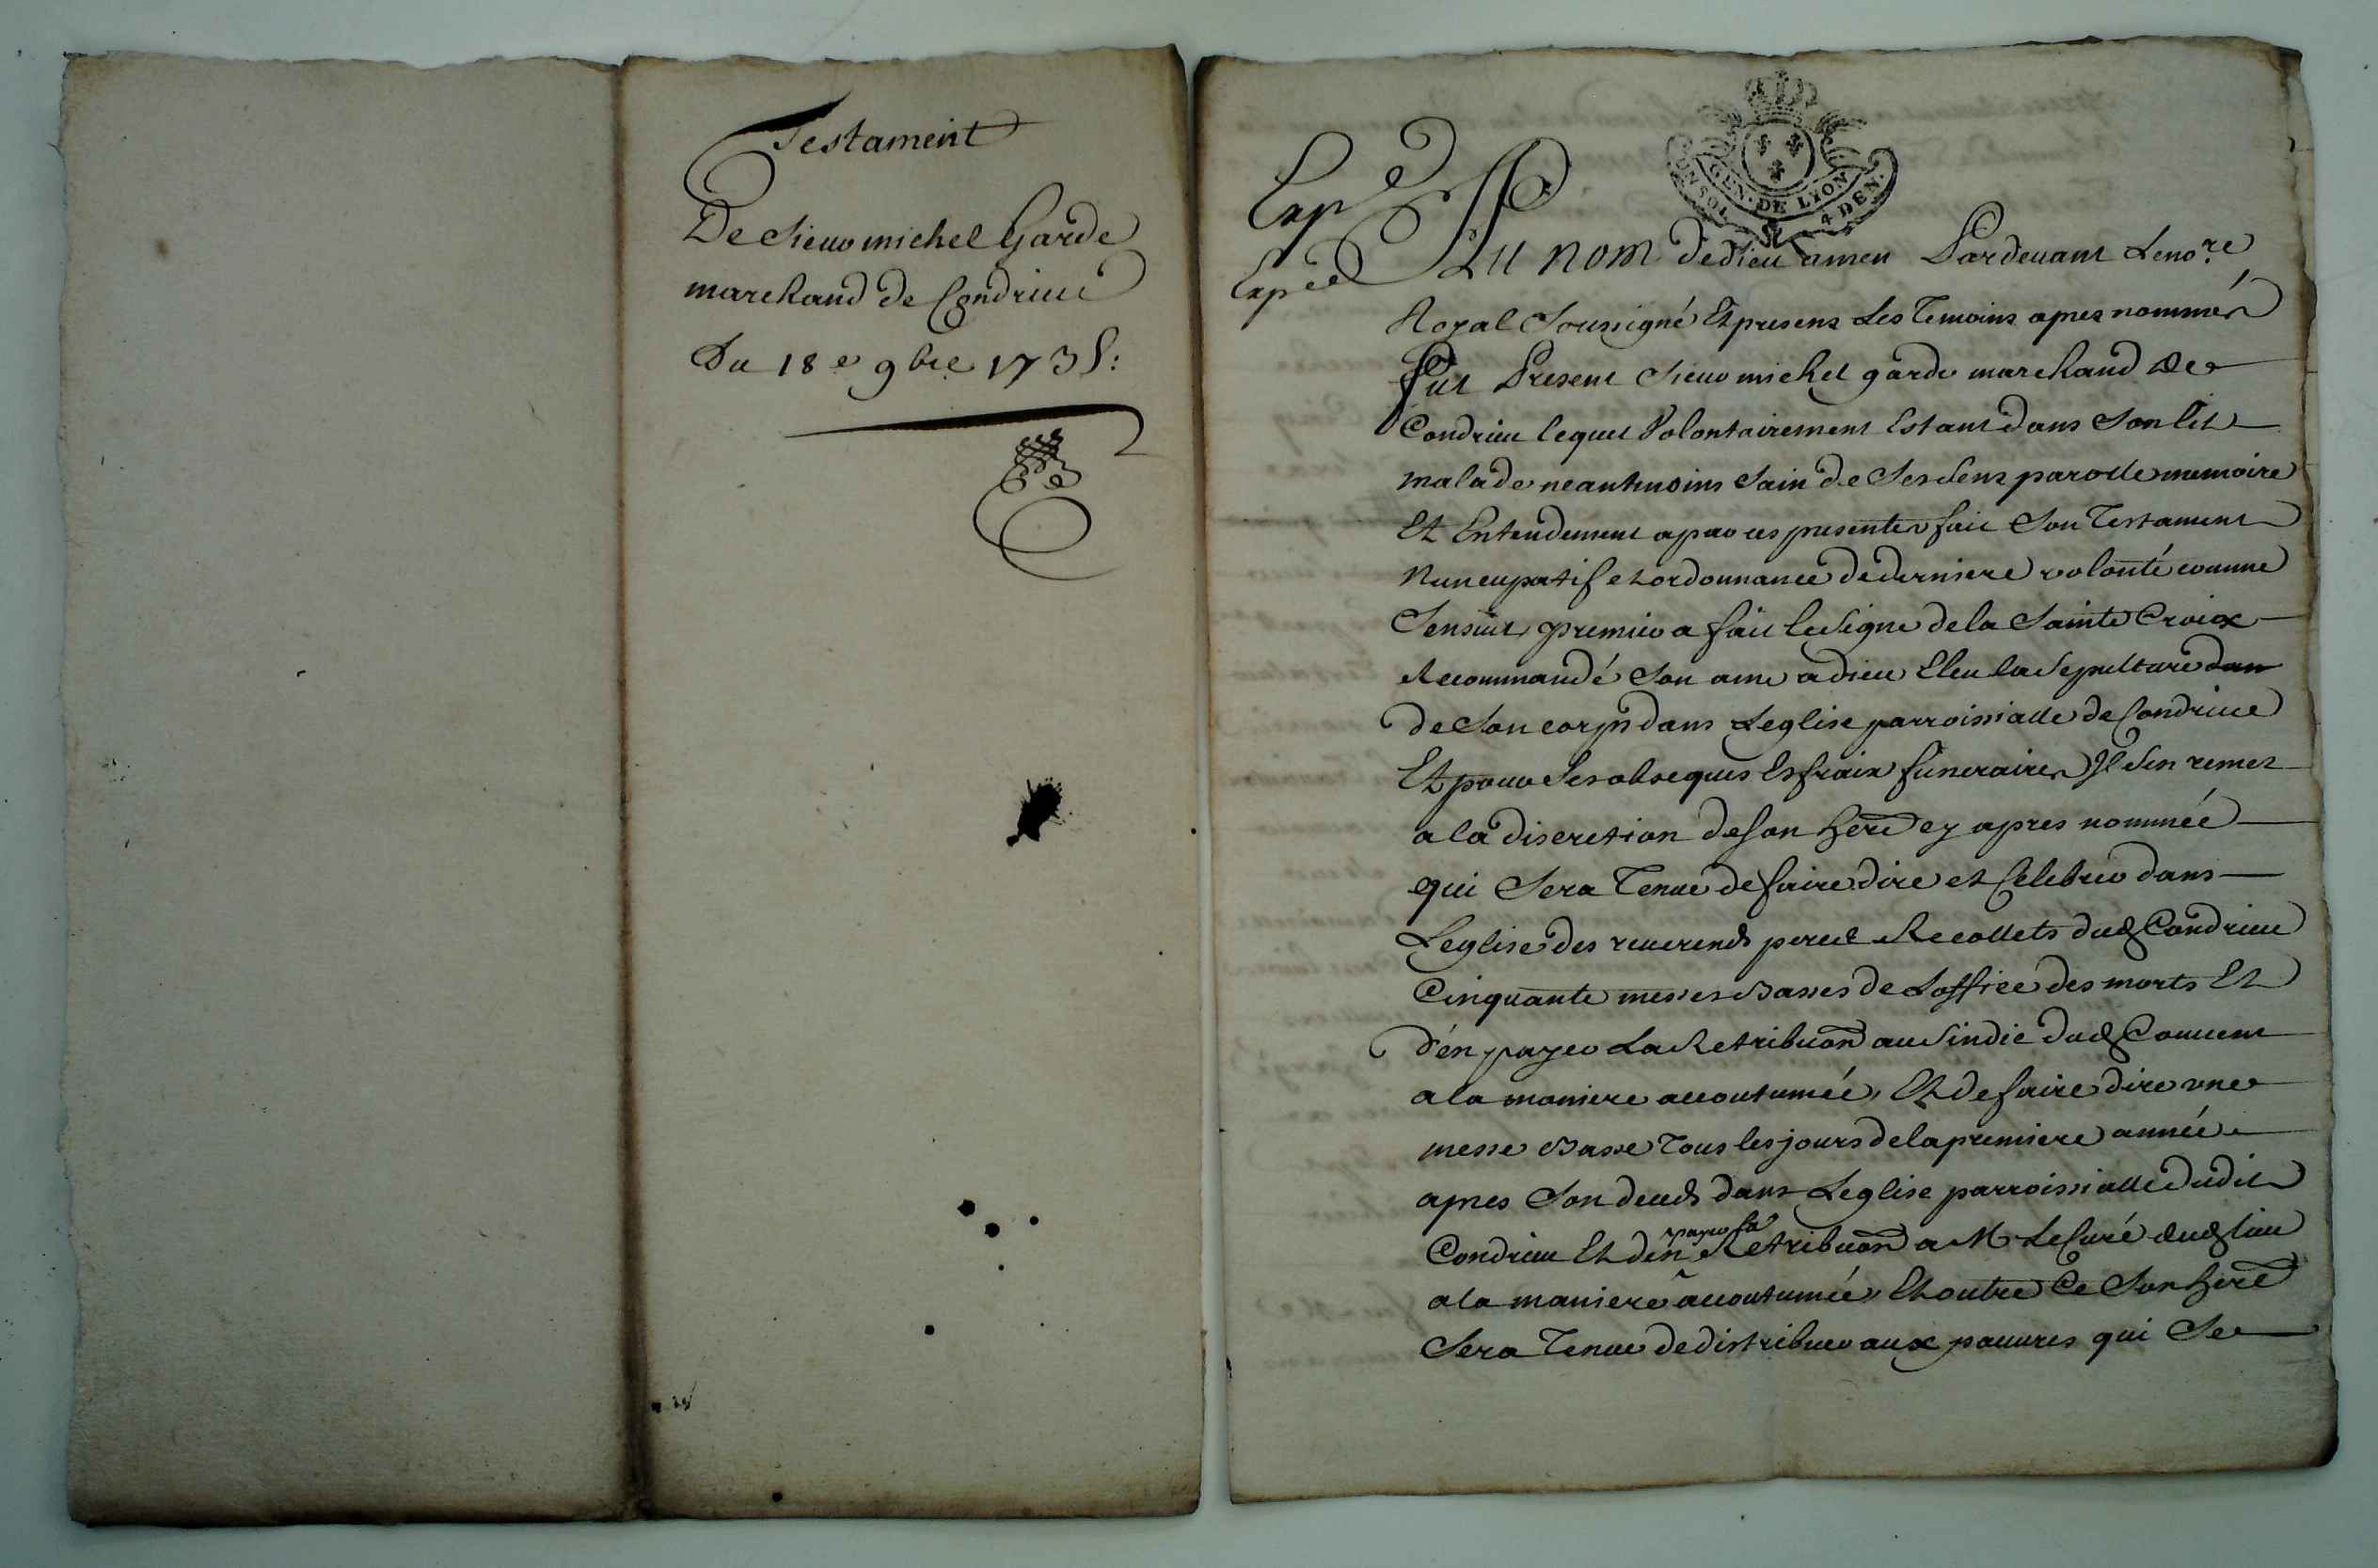 Testament
De Sieur michel Garde
marchand de Condrieu
Du 18e 9bre 1735:
GEN. DE LYON
UN SOL 4 DEN.
Expée
Expée
Au nom de dieu amen Pardevant Le nore
Royal Soussigné Et presens Les Temoins apres nommés
Fut Present Sieur michel garde marchand de
Condrieu lequel Volontairement Estant dans Son lit
malade neantmoins Sain de Ses Sens parolle memoire
Et Entendement a par ces presentes fait Son Testament
Nuncupatif et ordonnance de derniere volonté comme
Sensuit, premier a fait le Signe de la Sainte Croix
Recommandé Son ame a dieu Eleu la Sepulture dans
de Son corps dans Leglise parroissialle de Condrieu
Et pour Ses obseques Et fraix funeraires Il Sen remet
a la discretion de son here cy apres nommée
qui Sera Tenue de faire dire et Celebrer dans
Leglise des reverends peres Recollets dud Condrieu
Cinquante messes Basses de Loffice des morts Et
d'en payer La Retribuon au Sindic dud Couvent
a la maniere accoutumée, Et de faire dire une
messe Basse Tous les jours de la premiere année
apres Son deceds dans Leglise parroissialle dudit
Condrieu Et d'en payer la Retribuon a Mr Le Curé dud lieu
a la maniere accoutumée, Et outre Ce Son here
Sera Tenue de distribuer aux pauvres qui Se